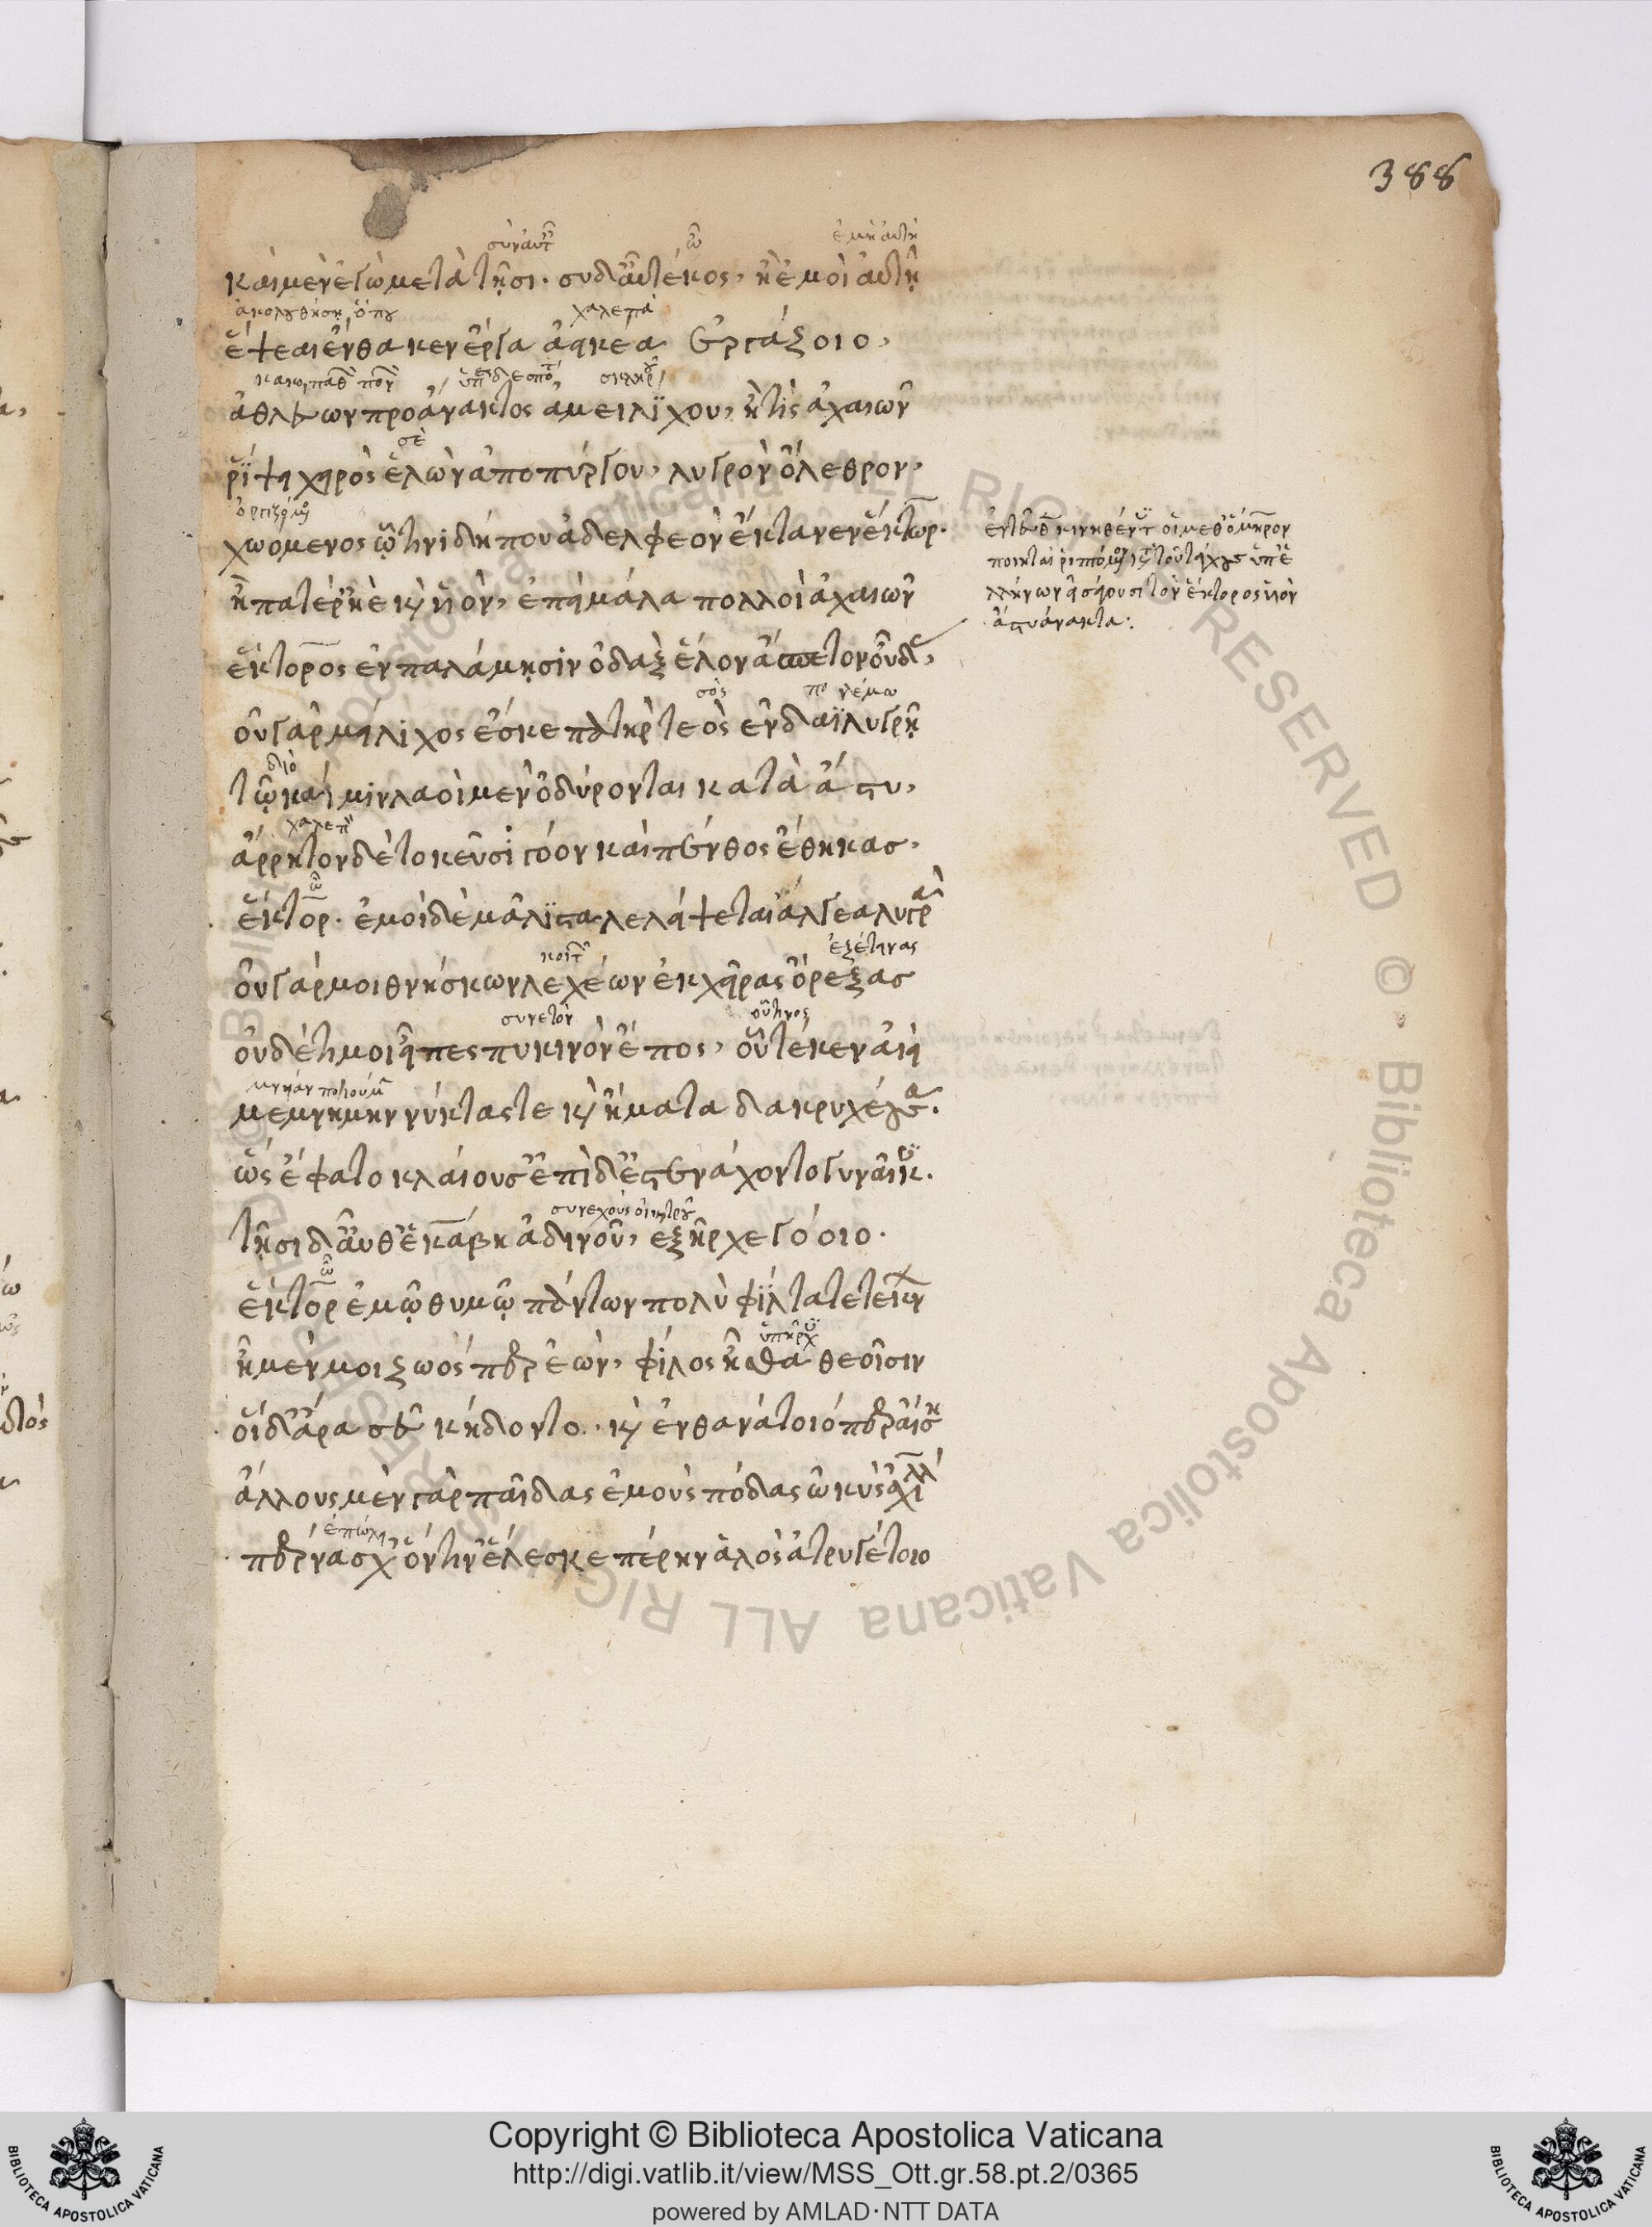 388
σὺν αὐτ ὦ ἐμὴ αὐτὴ
καὶ μὲν ἐγὼ μετὰ τῆσι. συ δ' αὖ τέκος, ἢ ἐμοὶ αὐτῆ
ἀκολουθήση ὅπου χαλεπὰ
ἕψεαι ἔνθα κεν ἔργα ἀεικέα ἐργάζοιο,
ἀθλεύων προ ἄνακτος αμειλίχου, ἤ τις ἀχαιῶν
σὲ
ρίψει χειρὸς ἑλὼν ἀπο πύργου, λυγρὸν ὄλεθρον,
ὀργιζόμενος
χωόμενος ὧ τινι δή που ἀδελφεὸν ἔκτανεν ἕκτωρ.
ἢ πατέρ' ἠὲ κὶ υἱὸν, ἐπεὶ μάλα πολλοὶ ἀχαιῶν
ἕκτορος ἐν παλάμησιν ὀδὰξ ἕλον ἄσπετον οὖδας,
σὸς πολέμω
οὐ γὰρ μείλιχος ἔσκε πατὴρ τεὸς ἐν δαῒ λυγρῆ
διὸ
τῶ καί μιν λαοὶ μὲν ὀδύρονται κατὰ ἄστυ,
χαλεπὸν
ἄρρητον δὲ τοκεῦσι γόον καὶ πένθος ἔθηκας,
ὦ
ἕκτορ. ἐμοὶ δὲ μάλιστα λελείψεται ἄλγεα λυγρὰ
κοιτ ἐξέτεινας
οὐ γάρ μοι θνήσκων λεχέων ἐκ χεῖρας ὄρεξας
συνετὸν οὗτινος
οὐδέ τί μοι εἶπες πυκινὸν ἔπος, οὗ τέ κεν αἰεὶ
μεμνήμην νύκτας τε κὶ ἤματα δακρυχέουσα.
ὣς ἔφατο κλαίουσ' ἐπὶ δὲ στενάχοντο γυναῖκες.
συνεχοῦς οἰκτροῦ
τῆσι δ' αὖθ' ἑκάβη ἀδινοῦ, ἐξῆρχε γόοιο.
ὦ
ἕκτορ ἐμῶ θυμῶ πάντων πολὺ φίλτατε τέκνων
ὑπῆρχες
ἦ μέν μοι ζωός περ ἐὼν, φίλος ἦσθα θεοῖσιν
οἱ δ' ἄρα σεῦ κήδοντο. κὶ ἐν θανάτοιό περ αἴση
ἄλλους μὲν γὰρ παῖδας ἐμοὺς πόδας ὠκὺς ἀχιλλεύς
ἐπώλει
πέρνασχ' ὅν τιν' ἕλεσκε πέρην ἁλὸς ἀτρυγέτοιο
ἐντεῦθεν κινηθέντες οἱ μεθ' ὅμηρον
ποιηταὶ ῥιπτόμενον κατὰ τοῦ τείχους ὑπ' ἑ
λλήνων εἰσάγουσι τὸν ἕκτορος υἱὸν
ἀστυάνακτα:
Copyright © Biblioteca Apostolica Vaticana
http://digi.vatlib.it/view/MSS_Ott.gr.58.pt.2/0365
powered by AMLAD·NTT DATA
BIBLIOTECA APOSTOLICA VATICANA
BIBLIOTECA APOSTOLICA VATICANA
© Biblioteca Apostolica Vaticana ALL RIGHTS RESERVED